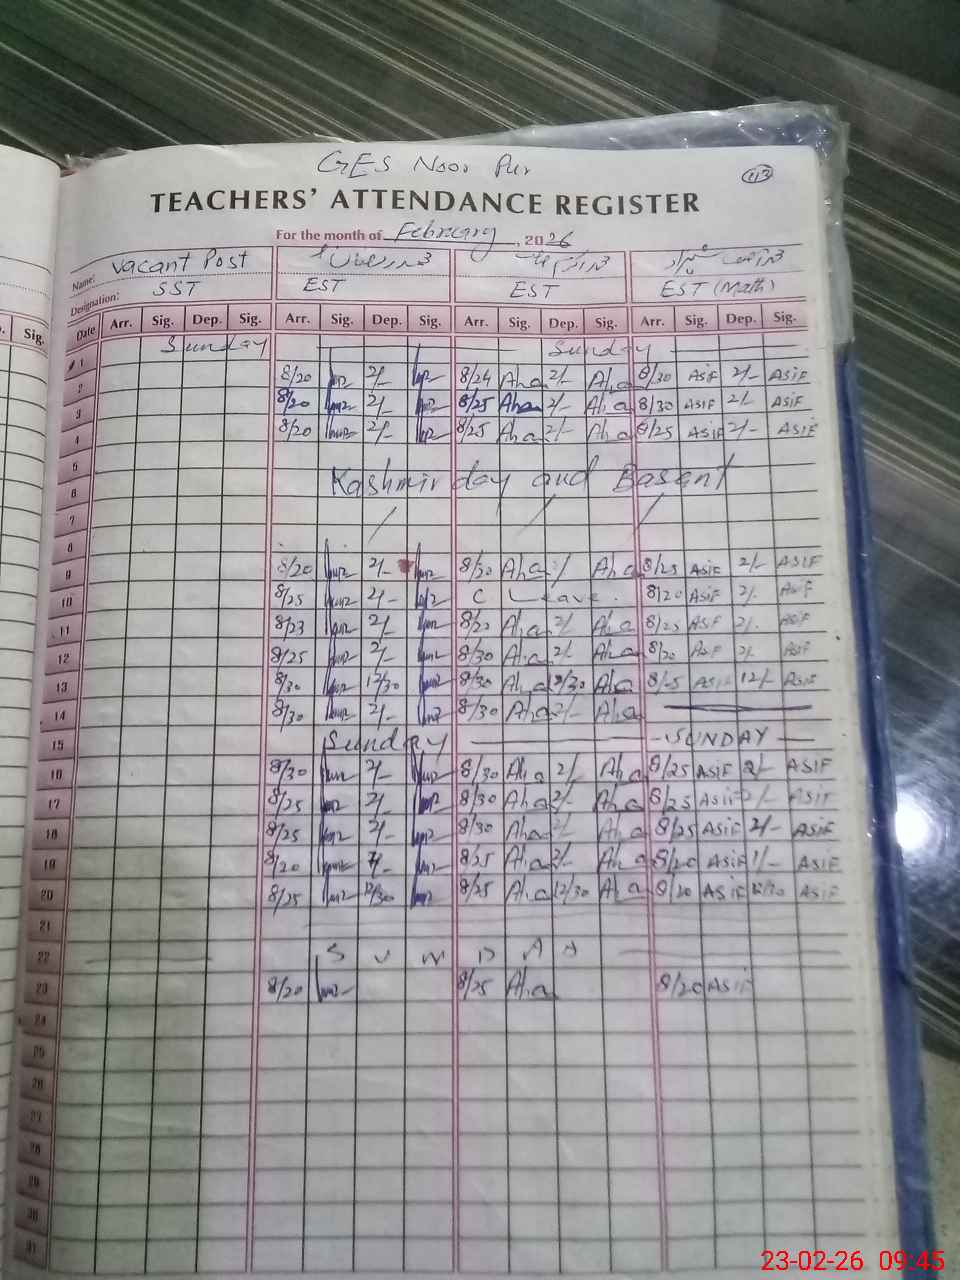 GES Noor Pur
113
TEACHERS' ATTENDANCE REGISTER
For the month of February, 2026
Name: Vacant Post
Designation: SST EST EST EST (Math)
Sig. Date Arr. Sig. Dep. Sig. Arr. Sig. Dep. Sig. Arr. Sig. Dep. Sig. Arr. Sig. Dep. Sig.
1 Sunday Sunday
2 8/20 2/- 8/24 Aha 2/- Aha 8/30 ASiF 2/- ASiF
3 8/20 2/- 8/25 Aha 2/- Aha 8/30 ASiF 2/- ASiF
4 8/20 2/- 8/25 Aha 2/- Aha 8/25 ASiF 2/- ASiF
5
6 Kashmir day and Basant
7
8
9 8/20 2/- 8/30 Aha Aha 8/25 ASiF 2/- ASiF
10 8/25 2/- C Leave. 8/20 ASiF 2/- ASiF
11 8/23 2/- Aha 2/- Aha 8/25 ASiF 2/- ASiF
12 8/25 2/- 8/30 Aha 2/- Aha 8/20 ASiF 2/- ASiF
13 8/30 12/30 8/30 Aha 12/30 Aha 8/25 ASiF 12/- ASiF
14 8/30 2/- 8/30 Aha 2/- Aha
15 Sunday SUNDAY
16 8/30 2/- 8/30 Aha 2/- Aha 8/25 ASiF 2/- ASiF
17 8/25 2/- 8/30 Aha 2/- Aha 8/25 ASiF 2/- ASiF
18 8/25 2/- 8/30 Aha 2/- Aha 8/25 ASiF 2/- ASiF
19 8/20 8/25 Aha 2/- Aha 8/20 ASiF 1/- ASiF
20 8/25 12/30 8/25 Aha 12/30 Aha 8/20 ASiF 12/30 ASiF
21
22 SUNDAY
23 8/20 8/25 Aha 8/20 ASiF
24
25
26
27
28
29
30
31
23-02-26 09:45